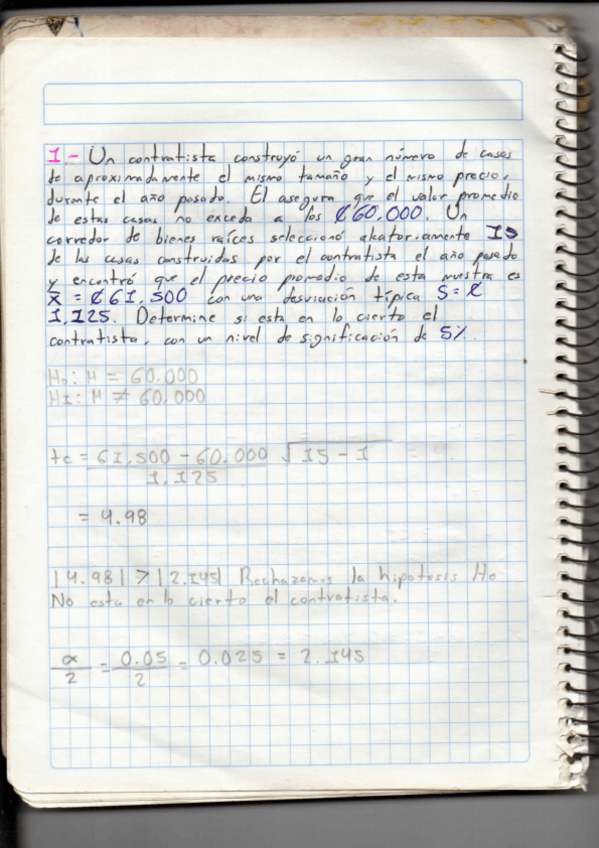 1- Un contratista construyó un gran número de casas
de aproximadamente el mismo tamaño y el mismo precio,
durante el año pasado. El asegura que el valor promedio
de estas casas no exceda a los ₡60.000. Un
corredor de bienes raíces seleccionó aleatoriamente 15
de las casas construidas por el contratista el año pasado
y encontró que el precio promedio de esta muestra es
x̄ = ₡61,500 con una desviación típica S= ₡
1,125. Determine si esta en lo cierto el
contratista, con un nivel de significación de 5%.
Ho: M = 60.000
H1: M ≠ 60.000
tc = 61,500 - 60.000 √15 - 1 =
1,125
= 4.98
|4.98| > |2.145| Rechazamos la hipotesis Ho
No esta en lo cierto el contratista.
α/2 = 0.05/2 = 0.025 = 2.145